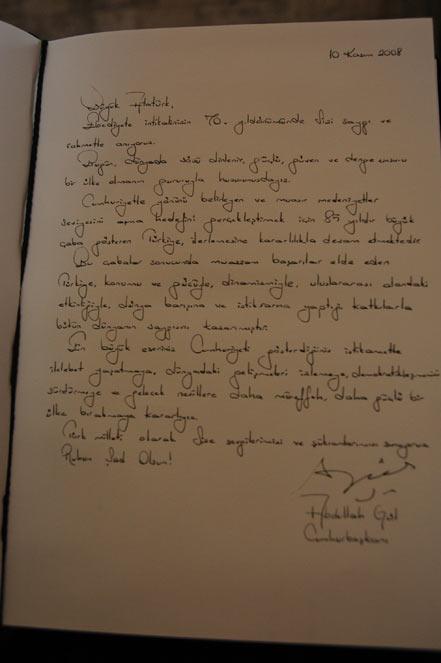 10 Kasım 2008
Büyük Atatürk,
Ebediyete intikalinizin 70. yıldönümünde Sizi saygı ve
rahmetle anıyoruz.
Bugün, dünyada sözü dinlenir, güçlü, güven ve denge unsuru
bir ülke olmanın gururuyla huzurunuzdayız.
Cumhuriyetle yönünü belirleyen ve muasır medeniyetler
seviyesini aşma hedefini gerçekleştirmek için 85 yıldır büyük
çaba gösteren Türkiye, ilerlemesine kararlılıkla devam etmektedir.
Bu çabalar sonucunda muazzam başarılar elde eden
Türkiye, konumu ve gücüyle, dinamizmiyle, uluslararası alandaki
etkinliğiyle, dünya barışına ve istikrarına yaptığı katkılarla
bütün dünyanın saygısını kazanmıştır.
En büyük eseriniz Cumhuriyeti gösterdiğiniz istikamette
ilelebet yaşatmaya, dünyadaki gelişmeleri izlemeye, demokratikleşmesini
sürdürmeye ve gelecek nesillere daha müreffeh, daha güçlü bir
ülke bırakmaya kararlıyız.
Türk milleti olarak Size sevgilerimizi ve şükranlarımızı sunuyoruz
Ruhun Şad Olsun!
Abdullah Gül
Cumhurbaşkanı